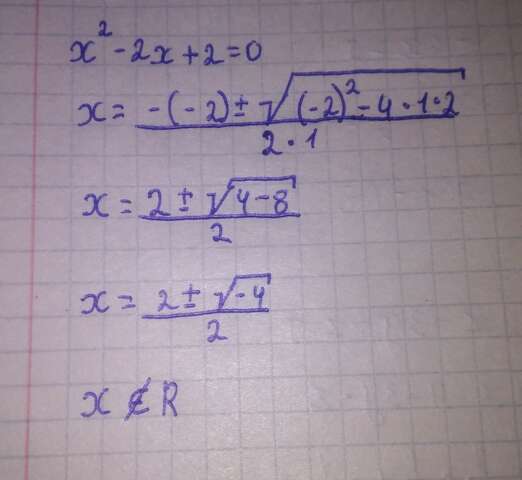 x² - 2x + 2 = 0
x = (-(-2) ± √((-2)² - 4 · 1 · 2)) / (2 · 1)
x = (2 ± √(4 - 8)) / 2
x = (2 ± √(-4)) / 2
x ∉ R